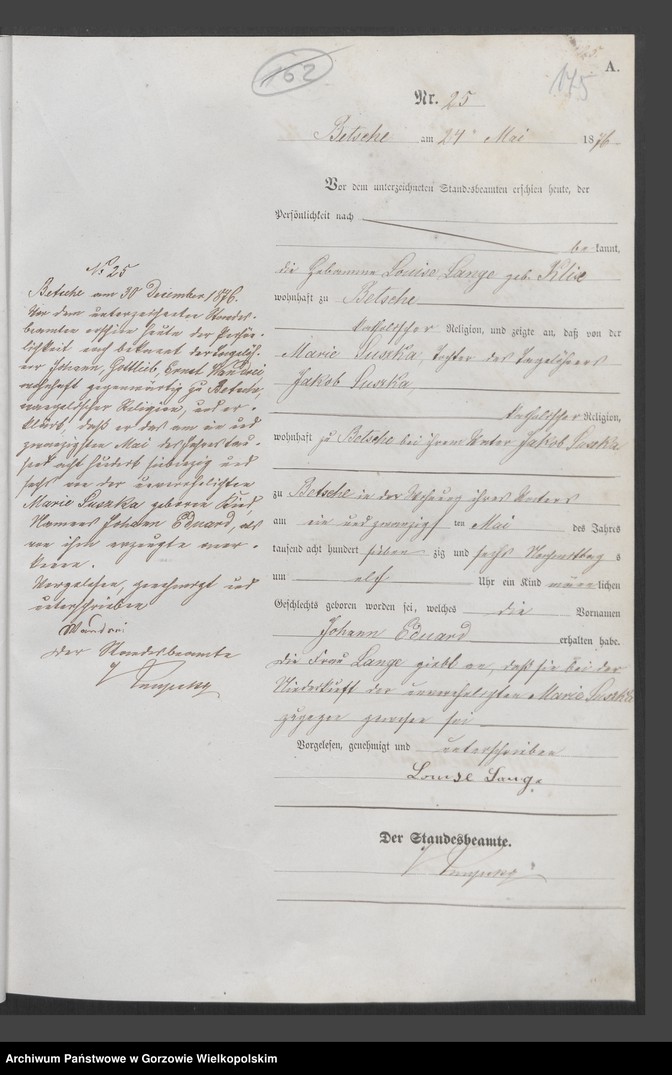 162
145
A.
Nr. 25
Betsche am 24 Mai 1876
Vor dem unterzeichneten Standesbeamten erschien heute, der
Persönlichkeit nach
be kannt,
die Hebamme Louise Lange geb. Klie
wohnhaft zu Betsche
katholischer Religion, und zeigte an, daß von der
Marie Suszka, Tochter des Tagelöhners
Jakob Suszka
katholischer Religion,
wohnhaft zu Betsche bei ihrem Vater Jakob Suszka
zu Betsche in der Wohnung ihres Vaters
am ein und zwanzigsten Mai des Jahres
tausend acht hundert sieben zig und sechs Nachmittag s
um elf Uhr ein Kind männ lichen
Geschlechts geboren worden sei, welches die Vornamen
Johann Eduard erhalten habe.
Die Frau Lange giebt an, daß sie bei der
Niederkunft der unverehelichten Marie Suszka
zugegen gewesen sei
Vorgelesen, genehmigt und unterschrieben
Louise Lange
Der Standesbeamte.
No 25
Betsche am 30 December 1876.
Vor dem unterzeichneten Standes-
beamten erschien heute der Persön-
lichkeit nach bekannt der Tagelöh-
ner Johann, Gottlieb, Ernst
wohnhaft gegenwärtig zu Betsche,
evangelischer Religion, und er-
klärt, daß er das am ein und
zwanzigsten Mai des Jahres tau-
send acht hundert siebenzig und
sechs von der unverehelichten
Marie Suszka geborene Kind,
Namens Johann Eduard, als
von ihm erzeugt aner-
kenne.
Vorgelesen, genehmigt und
unterschrieben
Der Standesbeamte
Archiwum Państwowe w Gorzowie Wielkopolskim